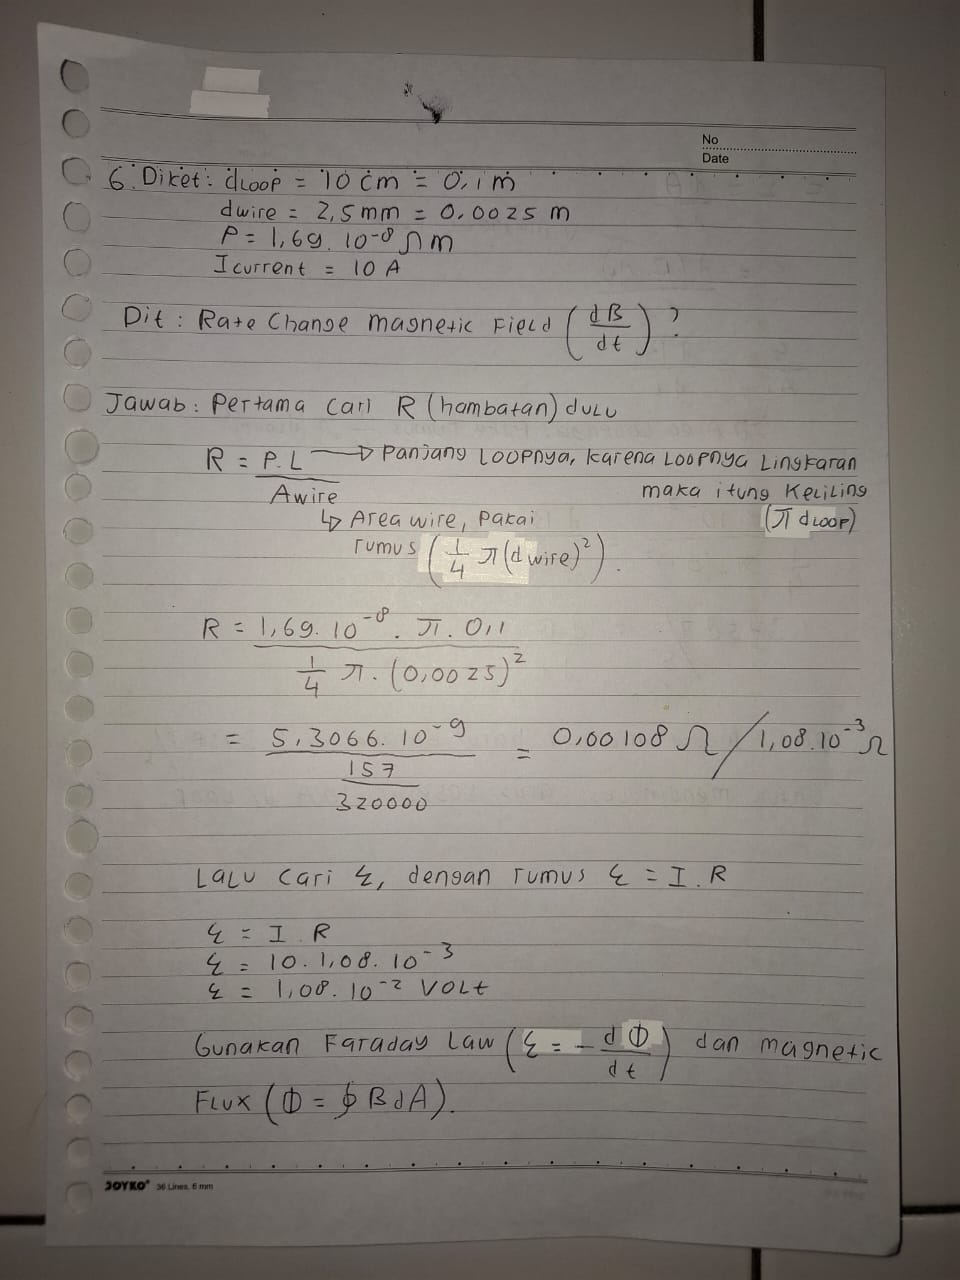 No
Date
6. Diket: dLOOP = 10 cm = 0,1 m
dwire = 2,5 mm = 0,0025 m
P = 1,69. 10⁻⁸ Ω m
I current = 10 A
Dit : Rate Change magnetic Field (dB/dt) ?
Jawab : Pertama cari R (hambatan) dulu
R = P.L / Awire → Panjang LOOPnya, karena Loopnya Lingkaran
maka itung Keliling
(π dLOOP)
↳ Area wire, Pakai
rumus (1/4 π (d wire)²).
R = 1,69. 10⁻⁸ . π. 0,1 / 1/4 π. (0,0025)²
= 5,3066. 10⁻⁹ / 157/320000 = 0,00108 Ω / 1,08.10⁻³ Ω
Lalu cari ε, dengan rumus ε = I.R
ε = I.R
ε = 10. 1,08. 10⁻³
ε = 1,08. 10⁻² Volt
Gunakan Faraday Law (ε = - dΦ/dt) dan magnetic
Flux (Φ = ∮ B dA).
JOYKO 36 Lines, 6 mm